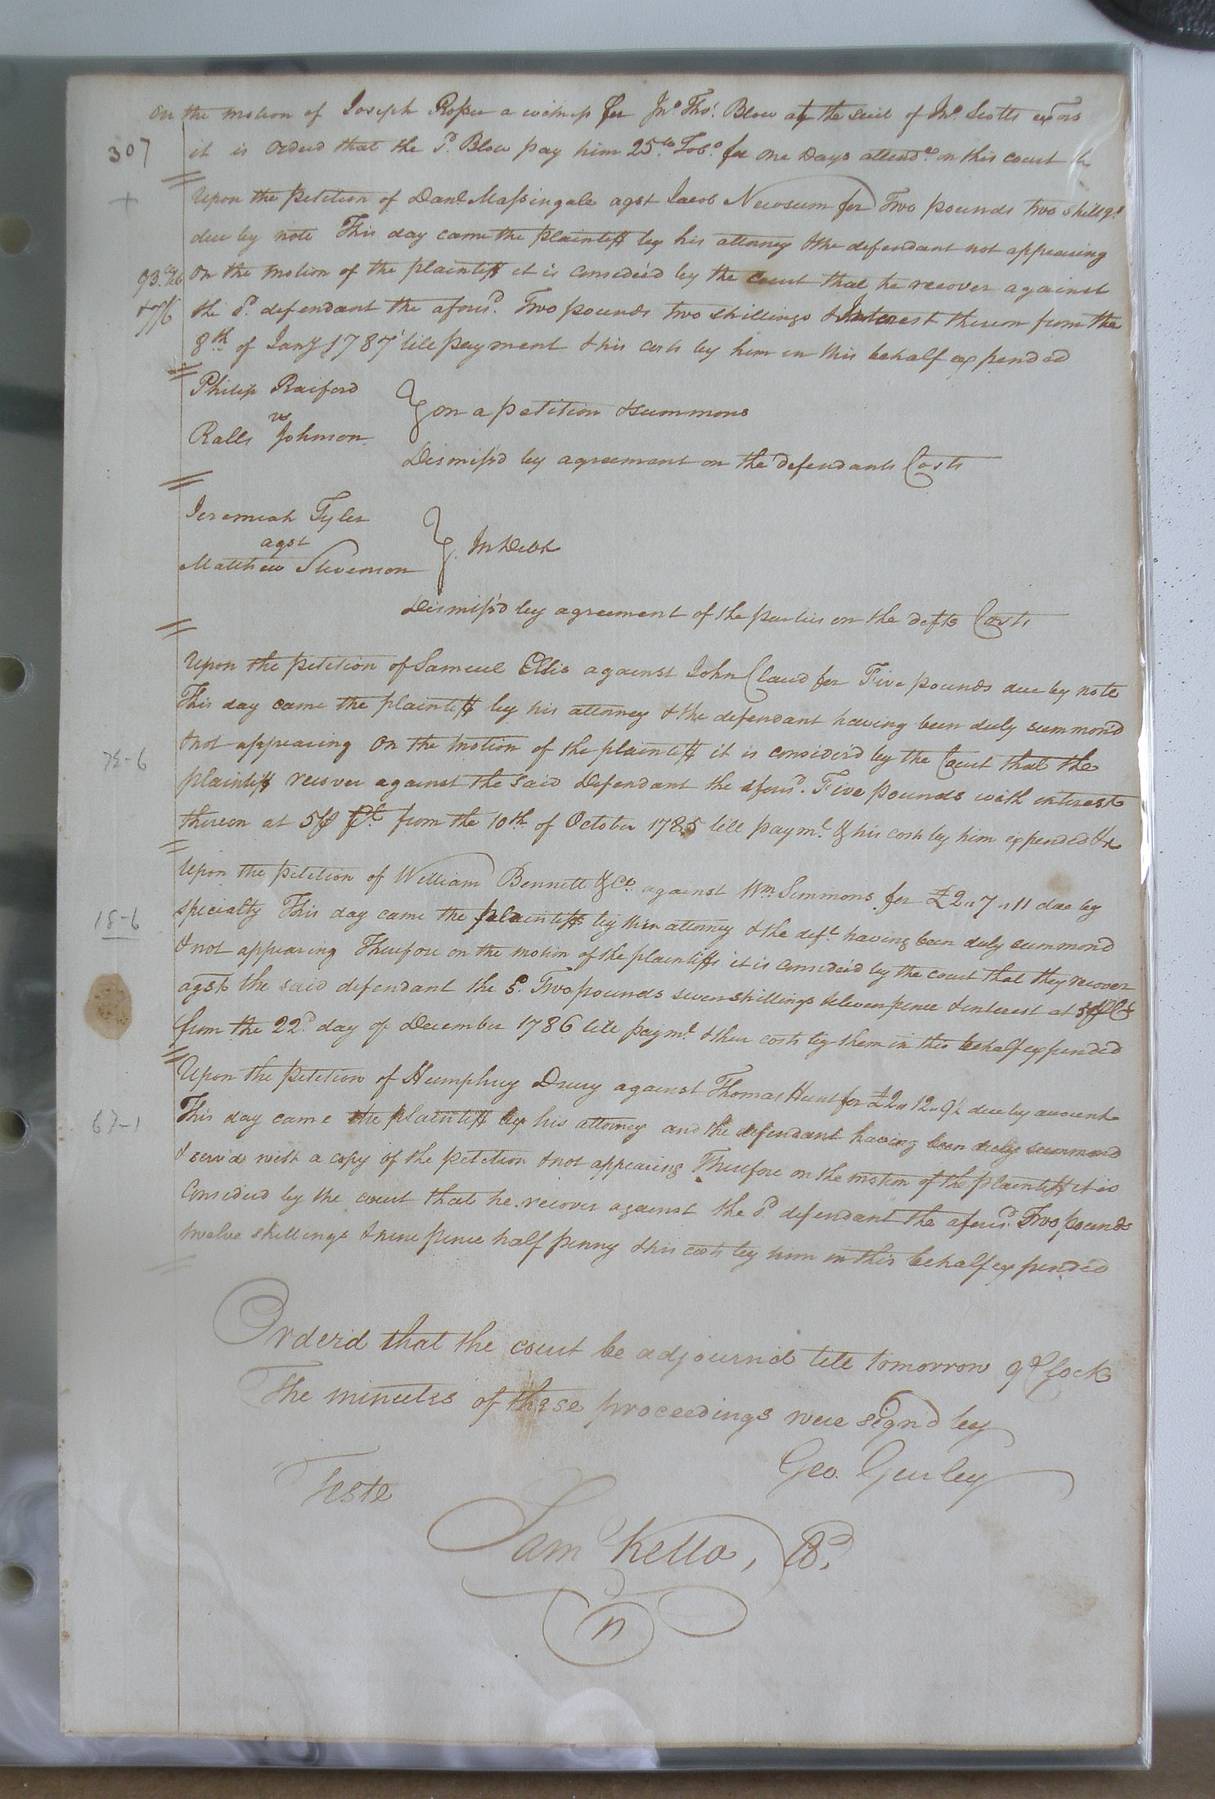 On the motion of Joseph Roper a witness for Jno Thos. Blow at the suit of Jno. Scotts exors
307
it is Orderd that the sd. Blow pay him 25 lb Tobo. for one Days attendce on this court &c
Upon the petition of Danl. Massingale agst Jacob Newsum for Two pounds two shillgs.
due by note This day came the plaintiff by his attorney & the defendant not appearing
On the motion of the plaintiff it is considerd by the court that he recover against
the sd. defendant the aforesd. Two pounds two shillings & Interest thereon from the
8th. of Jany 1787 till payment & his costs by him in this behalf expended
Philip Raiford
vs
Ralls Johnson
on a petition & summons
Dismiss'd by agreement on the defendants Costs
Jeremiah Tyler
agst
Matthew Stevenson
In Debt
Dismiss'd by agreement of the parties on the defts Costs
Upon the petition of Samuel Ellis against John Claud for Five pounds due by note
This day came the plaintiff by his attorney & the defendant having been duly summon'd
& not appearing On the motion of the plaintiff it is consider'd by the Court that the
75-6
plaintiff recover against the said Defendant the aforesd. Five pounds with interest
thereon at 5 p Ct. from the 10th. of October 1785 till paymt. & his costs by him expended &c
Upon the petition of William Bennett & Co. against Wm. Simmons for £2..7..11 due by
specialty This day came the plaintiffs by their attorney & the deft. having been duly summond
18-6
& not appearing Therefore on the motion of the plaintiffs it is considerd by the court that they recover
agst. the said defendant the sd. Two pounds seven shillings & eleven pence & interest at 5 p Ct
from the 22d. day of December 1786 till paymt. & their costs by them in this behalf expended
Upon the petition of Humphry Drury against Thomas Hunt for £2..12..9½ due by account
This day came the plaintiff by his attorney and the defendant having been duly summond
67-1
& serv'd with a copy of the petition & not appearing Therefore on the motion of the plaintiff it is
Considerd by the court that he recover against the sd. defendant the aforesd. Two pounds
twelve shillings & nine pence half penny & his costs by him in this behalf expended
Orderd that the court be adjournd till tomorrow 9 oClock
The minutes of these proceedings were signd by
Geo. Gurley
Teste
Sam Kello, CC.